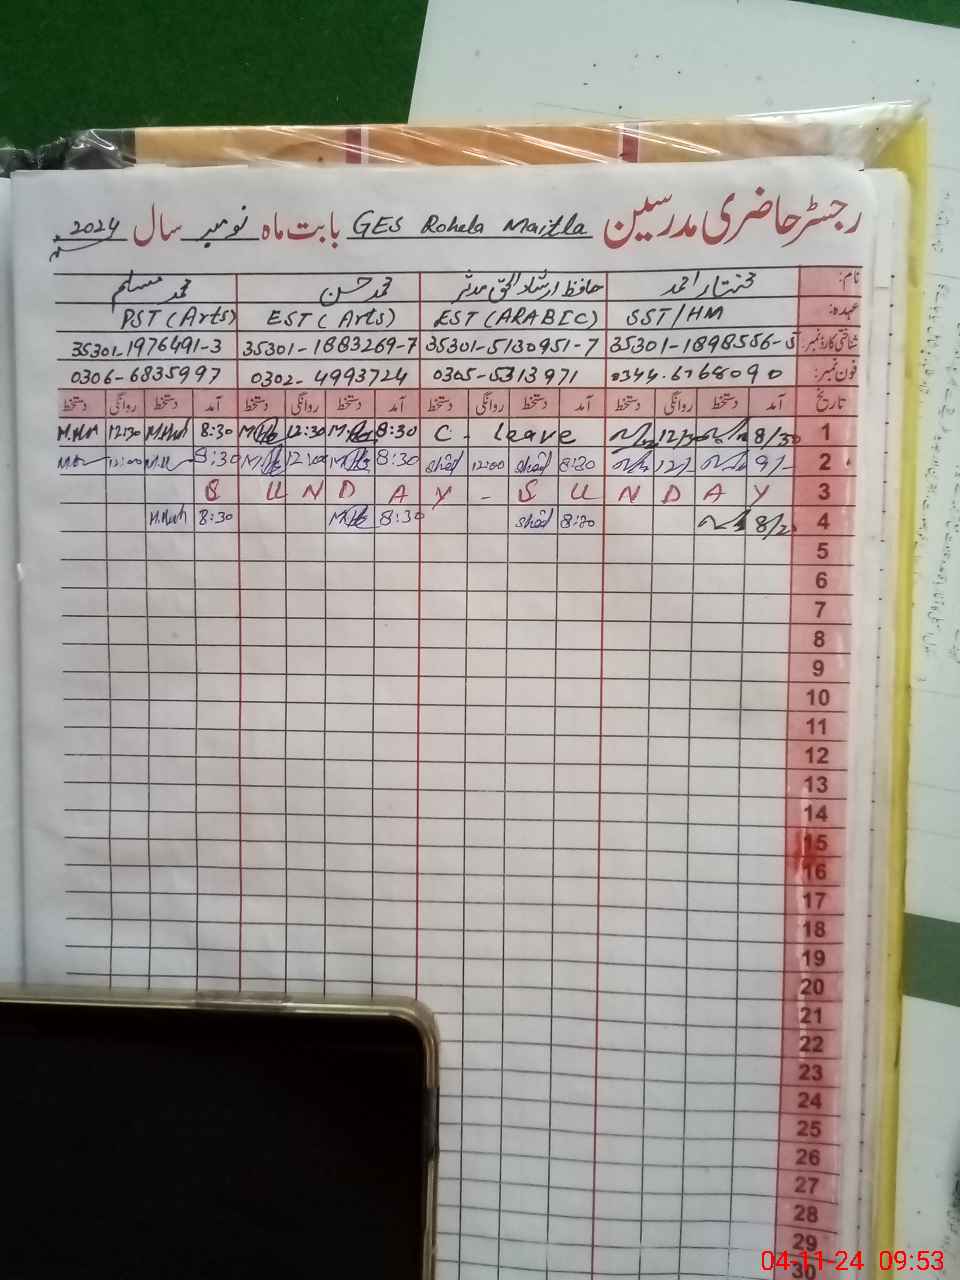 رجسٹر حاضری مدرسین GES Rohela Maitla بابت ماہ نومبر سال 2024
نام: مختار احمد حافظ ارشاد الحق مدثر محمد حسن محمد مسلم
عہدہ: SST/HM EST (ARABIC) EST (Arts) PST (Arts)
شناختی کارڈ نمبر: 35301-1898556-5 35301-5130951-7 35301-1883269-7 35301-1976491-3
فون نمبر: 0344-6768090 0305-5313971 0302-4993724 0306-6835997
تاریخ آمد دستخط روانگی دستخط آمد دستخط روانگی دستخط آمد دستخط روانگی دستخط آمد دستخط روانگی دستخط
1 8/30 12/30 C - Leave 8:30 12:30 8:30 12:30
2 9/- 12/- 8:30 12:00 8:30 12:00 8:30 12:00
3 SUNDAY - SUNDAY
4 8/30 8:30 8:30 8:30
5
6
7
8
9
10
11
12
13
14
15
16
17
18
19
20
21
22
23
24
25
26
27
28
29
30
04-11-24 09:53